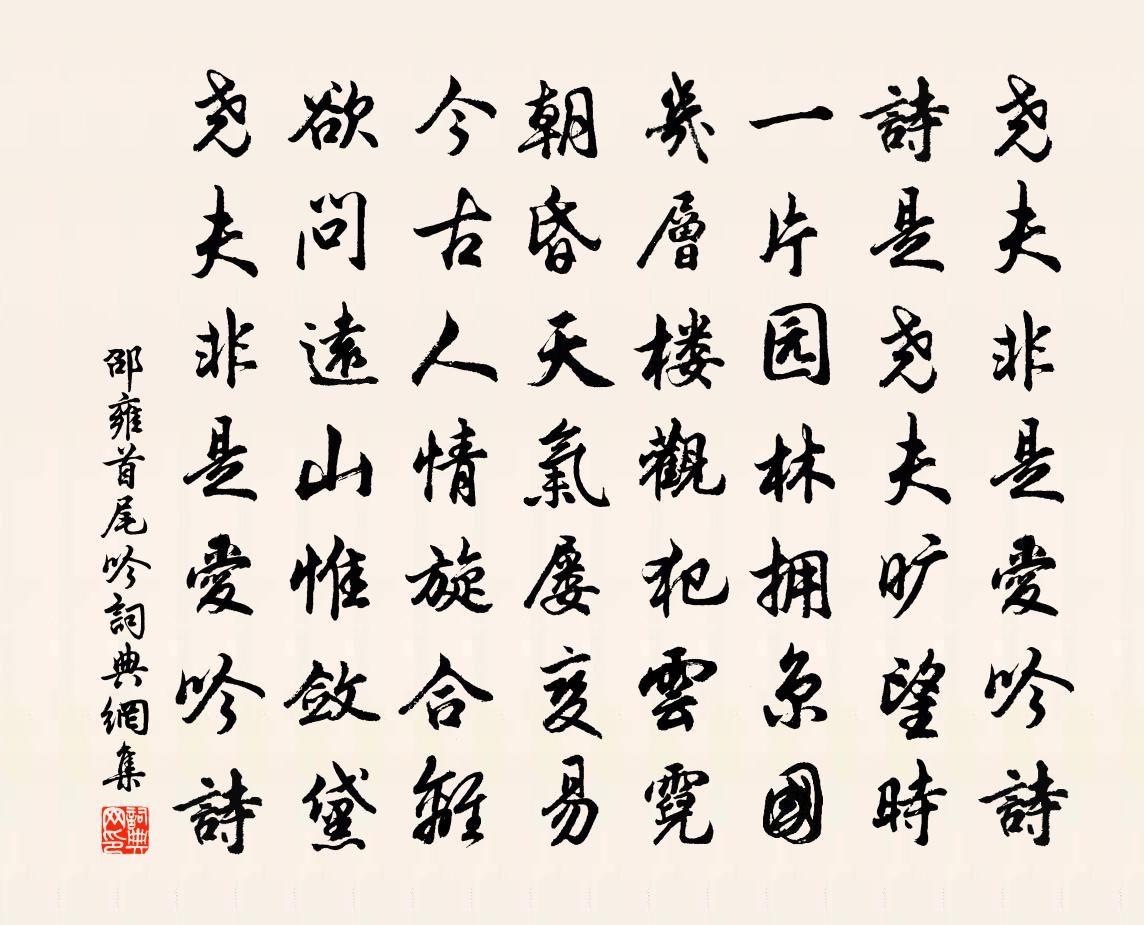 尧夫非是愛吟詩
詩是尧夫旷望時
一片园林拥京國
幾層楼觀犯雲霓
朝昏天氣屡变易
今古人情旋合離
欲問遠山惟斂黛
尧夫非是愛吟詩
邵雍首尾吟詞典網集
詞典網印